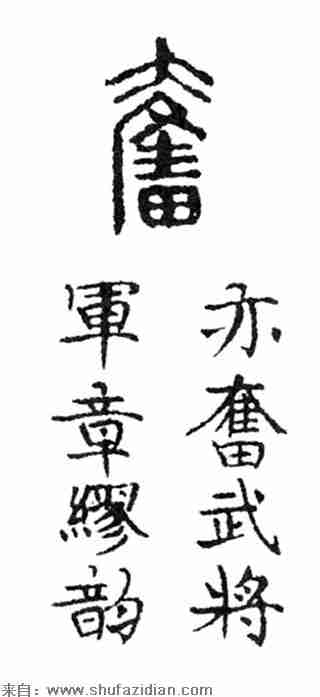 奮
亦奮武將
軍章繆韵
来自: www.shufazidian.com